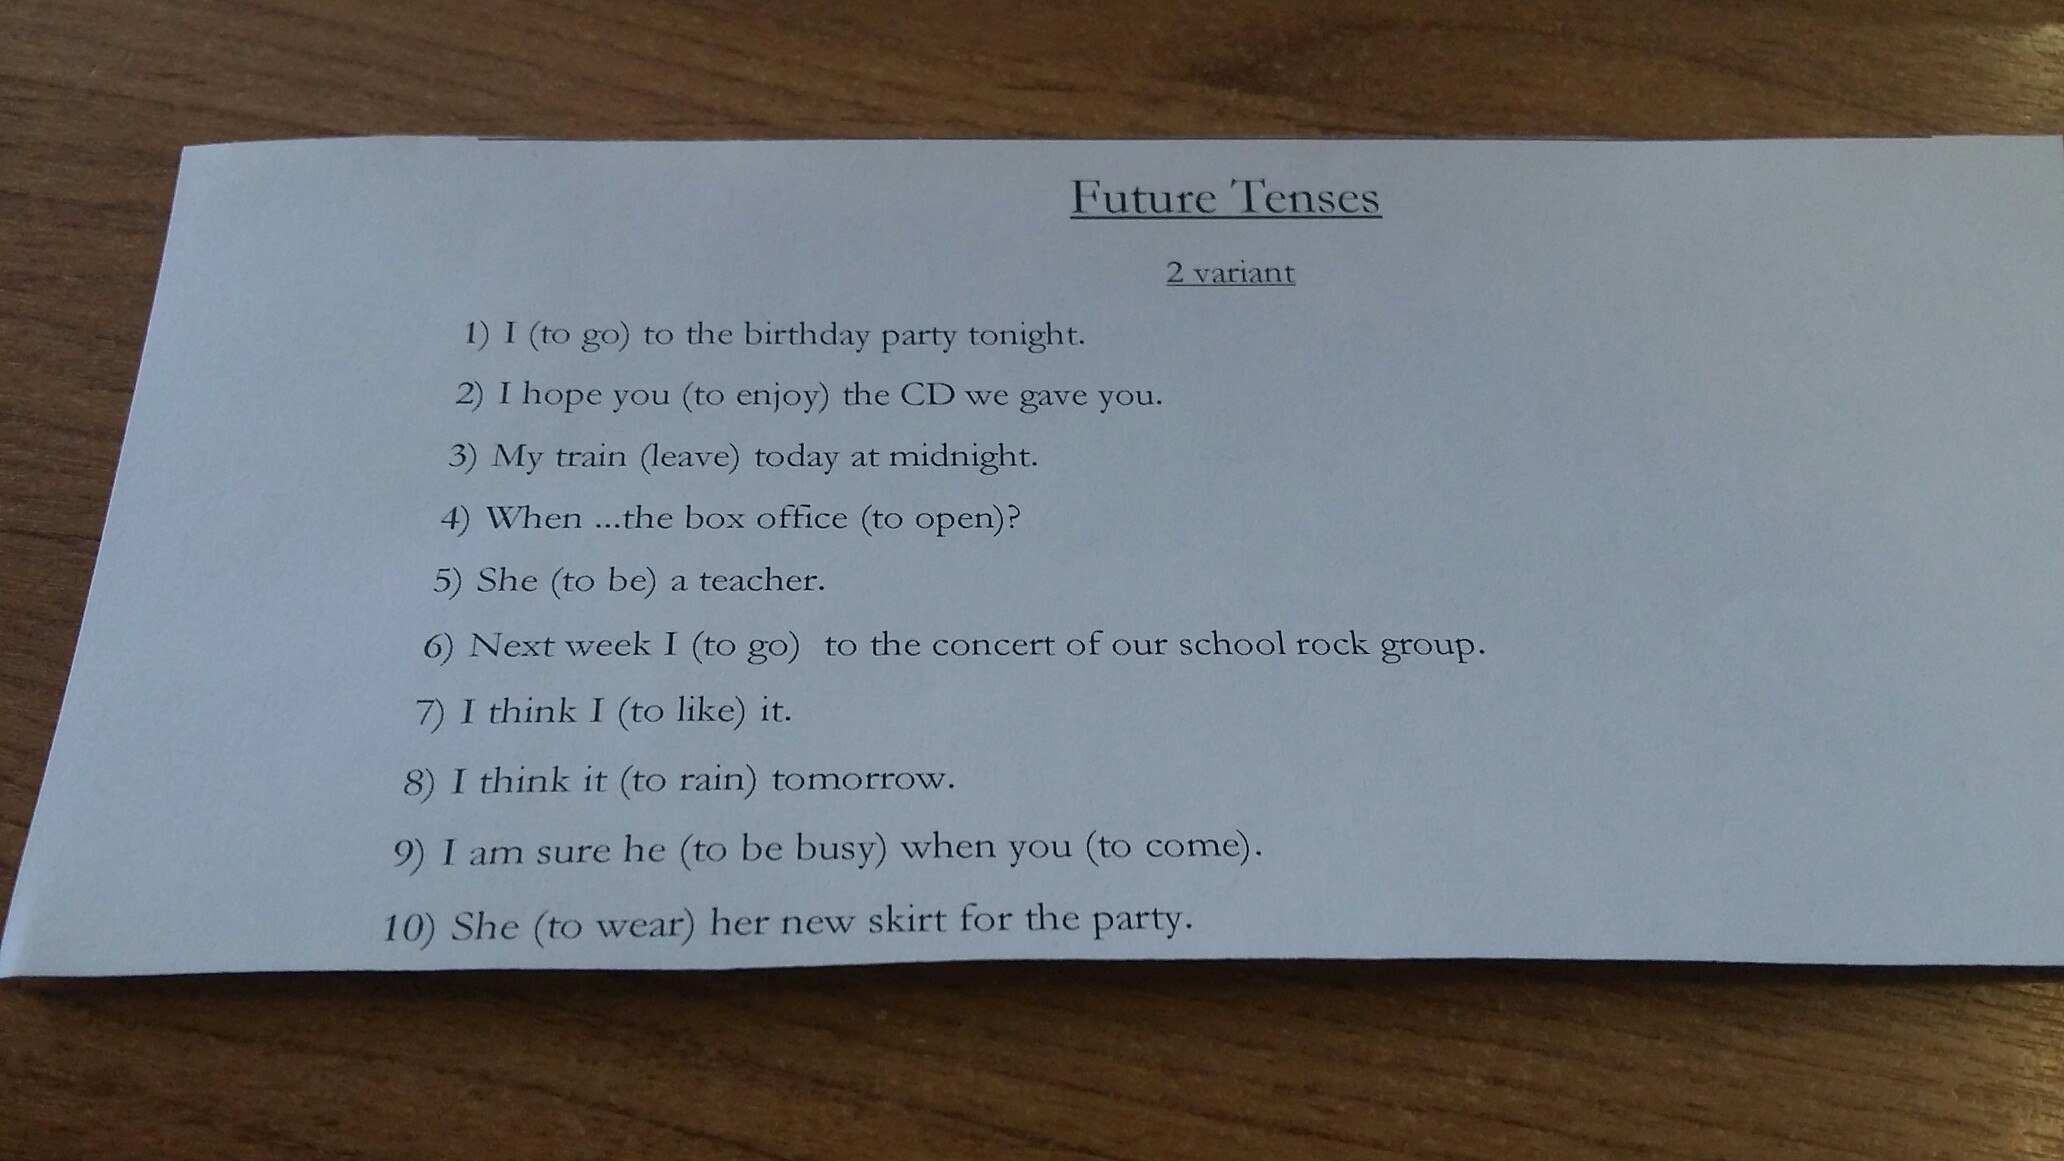 Future Tenses
2 variant
1) I (to go) to the birthday party tonight.
2) I hope you (to enjoy) the CD we gave you.
3) My train (leave) today at midnight.
4) When ...the box office (to open)?
5) She (to be) a teacher.
6) Next week I (to go)  to the concert of our school rock group.
7) I think I (to like) it.
8) I think it (to rain) tomorrow.
9) I am sure he (to be busy) when you (to come).
10) She (to wear) her new skirt for the party.